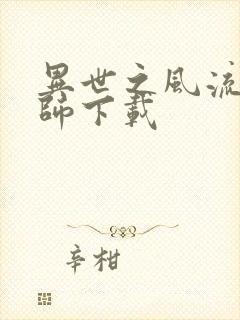 異世之風流
師下載
辛柑